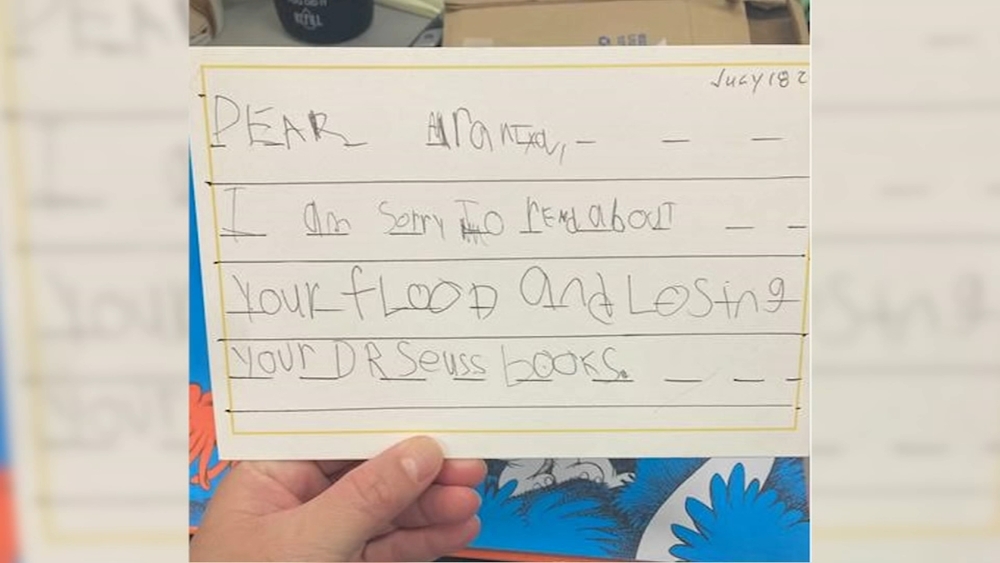 JULY 18 2
DEAR Aranixa,
I am sorry To rEAd about
your fLOOD and LoSing
your DR Seuss books.